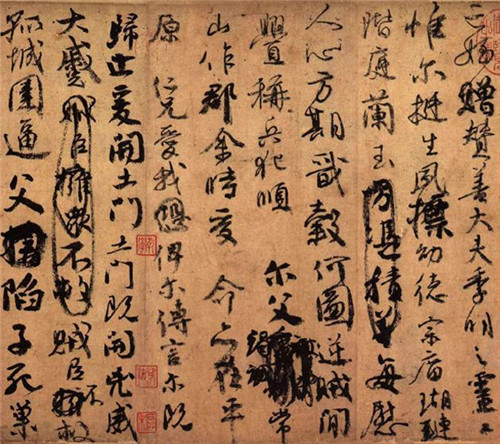 亡姪贈贊善大夫季明之靈
惟爾挺生夙標幼德宗廟瑚璉
階庭蘭玉方憑積善每慰
人心方期戩穀何圖逆賊閒
釁稱兵犯順爾父竭誠常
山作郡余時受命亦在平
原仁兄愛我俾爾傳言爾既
歸止爰開土門土門既開凶威
大蹙賊臣擁衆不救賊臣不救
孤城圍逼父陷子死巢